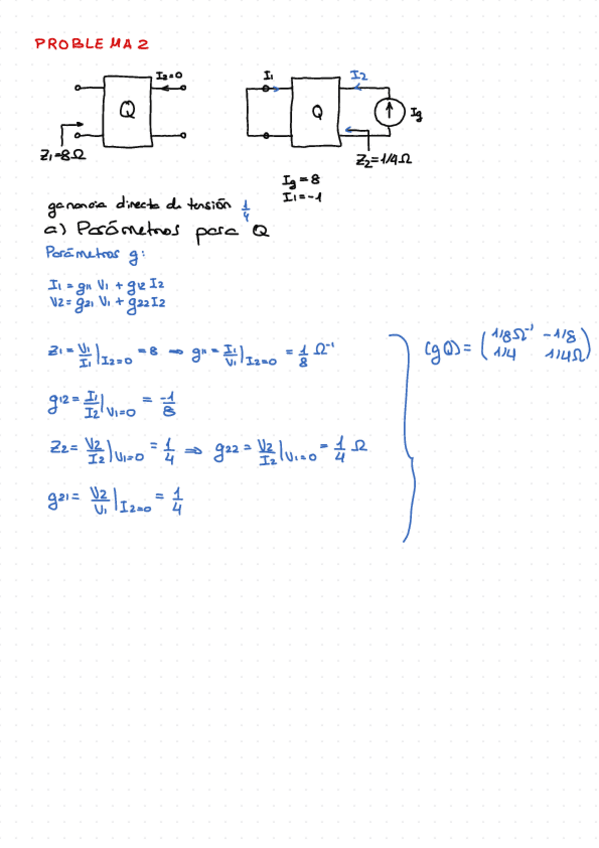 PROBLEMA 2
I2=0
Q
Z1=8Ω
I1
I2
Q
Ig
Z2=1/4Ω
Ig=8
I1=-1
ganancia directa de tensión 1/4
a) Parámetros para Q
Parámetros g:
I1 = g11 V1 + g12 I2
V2 = g21 V1 + g22 I2
Z1 = V1/I1 |I2=0 = 8 ⇒ g11 = I1/V1 |I2=0 = 1/8 Ω⁻¹
g12 = I1/I2 |V1=0 = -1/8
Z2 = V2/I2 |V1=0 = 1/4 ⇒ g22 = V2/I2 |V1=0 = 1/4 Ω
g21 = V2/V1 |I2=0 = 1/4
(gQ) = ( 1/8Ω⁻¹ -1/8
1/4 1/4Ω )